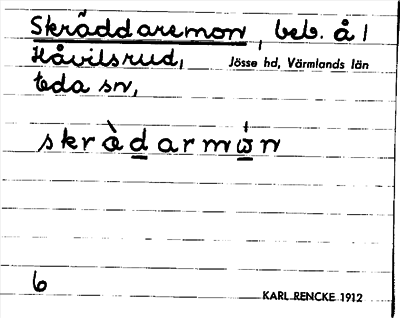 Skräddaremon, beb. å 1
Håvilsrud, Jösse hd, Värmlands län
Eda sn,
skràdarmȯn
6
KARL RENCKE 1912